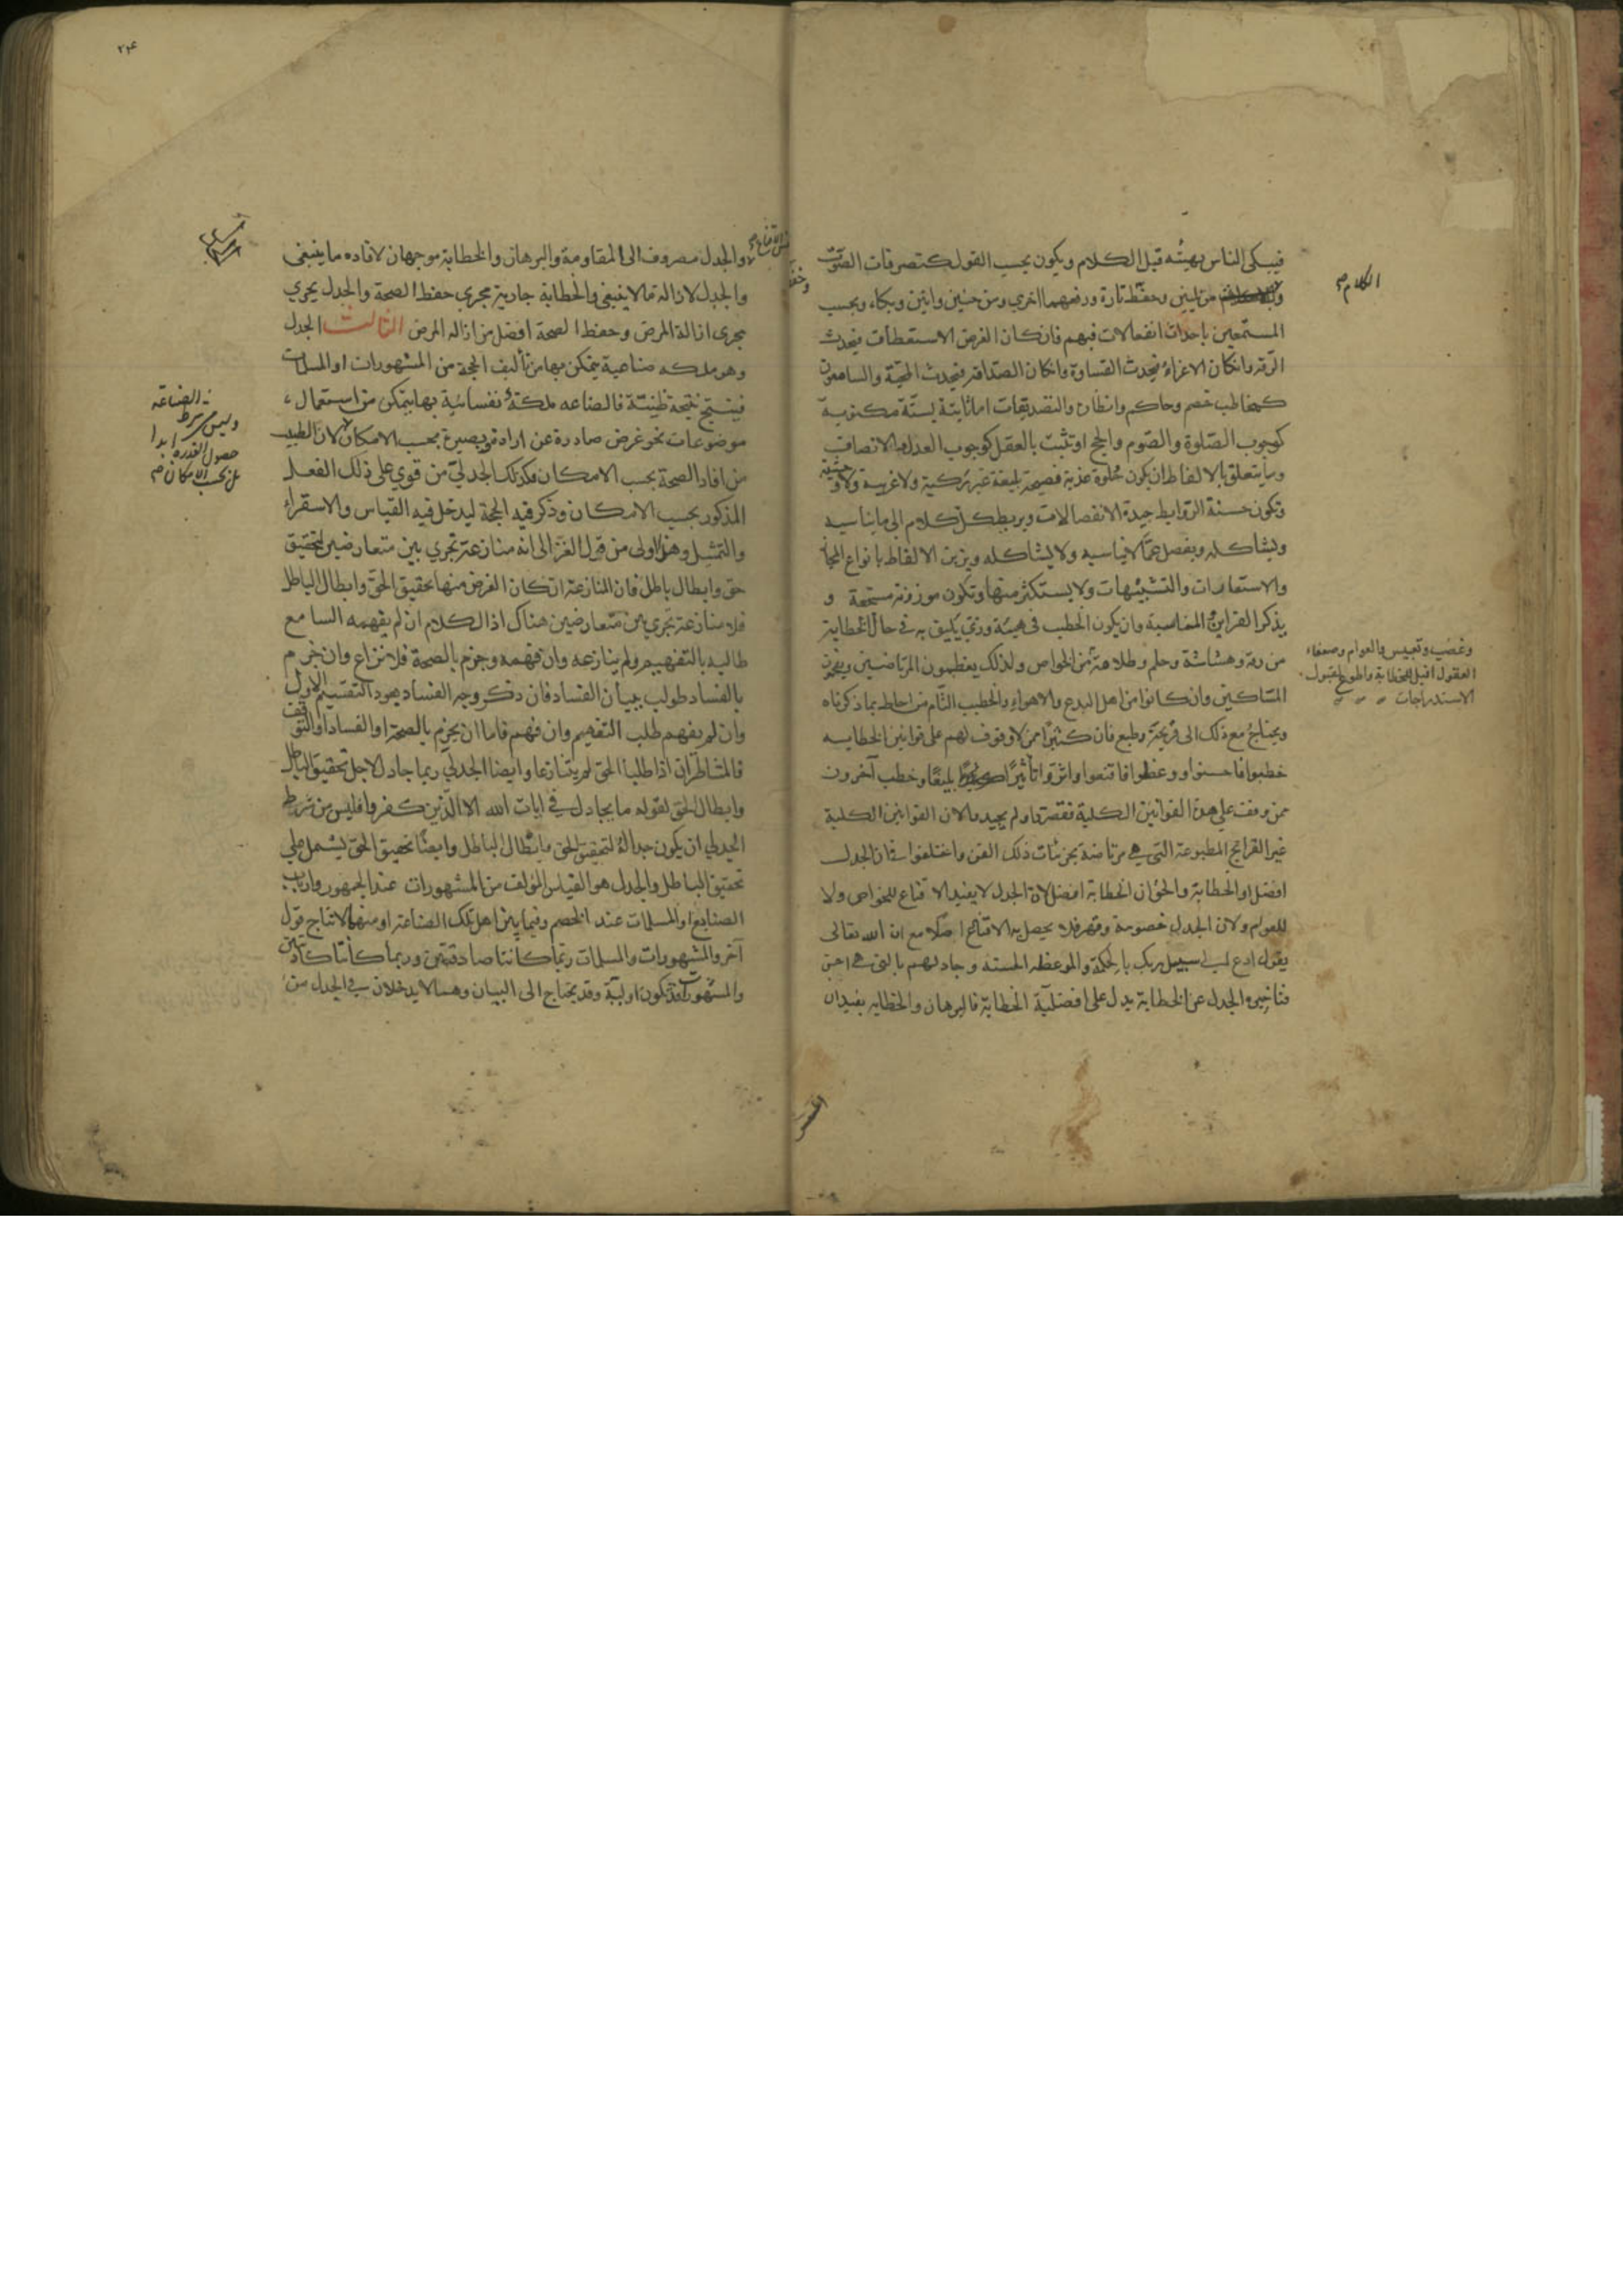 فيبكى الناس بهيئته قبل الكلام ويكون بحسب القول كتصرفات الصوت
من لين وخفظ تارة ورفعهما اخرى ومن حنين وانين وبكاء وبحسب
المستمعين باحداث انفعالات فيهم فان كان الغرض الاستعطاف فيحدث
الرقة وان كان الاغراء فيحدث القساوة وان كان الصداقة فيحدث المحبة والسامعون
كمخاطب خصم وحاكم ونظار والتصديقات اما ثابتة بسنة مكتوبة
كوجوب الصلوة والصوم والحج او تثبت بالعقل كوجوب العدل والانصاف
وما يتعلق بالالفاظ ان يكون حلوة عذبة فصيحة بليغة غير ركيكة ولا غريبة ولا وحشية
وتكون حسنة الروابط جيدة الانفصالات ويربط كل كلام الى ما يناسبه
ويشاكله ويفصل عما لا يناسبه ولا يشاكله ويزين الالفاظ بانواع المجاز
والاستعارات والتشبيهات ولا يستكثر منها وتكون موزونة مسجعة و
يذكر القراين المناسبة وان يكون الخطيب فى هيئة وزي يليق به فى حال الخطابة
من رقة وهشاشة وحلم وطلاقة من الخواص ولذلك يعظمون المرتاضين
المساكين وان كانوا من اهل البدع والاهواء والخطيب التام من احاط بما ذكرناه
ويحتاج مع ذلك الى قريحة وطبع فان كثيرا ممن لا وقوف لهم على قوانين الخطابه
خطبوا فاحسنوا ووعظوا فاقنعوا واثروا تاثيرا بليغا وخطب آخرون
ممن وقف على هذه القوانين الكلية فقصروا ولم يجيدوا لان القوانين الكلية
غير القرايح المطبوعة التى هى مرتاضة بجزئيات ذلك الفن واختلفوا فى ان الجدل
افضل او الخطابة والحق ان الخطابة افضل لان الجدل لا يفيد الاقناع للخواص ولا
للعوام ولان الجدل خصومة وقهر فلا يحصل به الاقناع اصلا مع ان الله تعالى
يقول ادع الى سبيل ربك بالحكمة والموعظه الحسنه وجادلهم بالتى هى احسن
فتاخيره الجدل عن الخطابة يدل على افضلية الخطابة فالبرهان والخطابه يفيدان
الكلام
وغضب وتعبيس والعوام وضعفاء
العقول اقبل للخطابة واطوع لقبول
الاستدراجات
٢٢٤
والجدل مصروف الى المقاومة والبرهان والخطابة موجهان لافاده ما ينبغى
والجدل لازالة ما لا ينبغى والخطابة جارية مجرى حفظ الصحة والجدل يجري
مجرى ازالة المرض وحفظ الصحة افضل من ازاله المرض الثالث الجدل
وهو ملكه صناعية يتمكن بها من تأليف الحجة من المشهورات او المسلمات
فينتج نتيجة ظنية فالصناعه ملكة نفسانية بها يتمكن من استعمال
موضوعات نحو غرض صادرة عن ارادة وبصيرة بحسب الامكان لان الطبيب
من افاد الصحة بحسب الامكان فكذلك الجدلي من قوي على ذلك الفعل
المذكور بحسب الامكان وذكر فيه الحجة ليدخل فيه القياس والاستقراء
والتمثيل وهو اولى من قول الغزالى انه منازعة تجري بين متعارضين لتحقيق
حق وابطال باطل فان المنازعة ان كان الغرض منها تحقيق الحق وابطال الباطل
فلا منازعة تجري بين متعارضين هناك اذ الكلام ان لم يفهمه السامع
طالبه بالتفهيم ولم ينازعه وان فهمه وجزم بالصحة فلا نزاع وان جزم
بالفساد طولب ببيان الفساد فان ذكر وجه الفساد يعود التقسيم الاول
وان لم يفهم طلب التفهيم وان فهم فاما ان يجزم بالصحة او الفساد او التوقف
فالمتناظران اذا طلبا الحق لم يتنازعا وايضا الجدلي ربما جادل لاجل تحقيق الباطل
وابطال الحق لقوله ما يجادل في ايات الله الا الذين كفروا فليس من شرط
الجدلي ان يكون جداله لتحقيق الحق وابطال الباطل وايضا تحقيق الحق يشتمل على
تحقيق الباطل والجدل هو القياس المؤلف من المشهورات عند الجمهور وارباب
الصنايع او المسلمات عند الخصم وفيما بين اهل تلك الصناعة او منهما لانتاج قول
آخر والمشهورات والمسلمات ربما كانتا صادقتين وربما كانتا كاذبتين
والمشهورات قد تكون اولية وقد يحتاج الى البيان وهما لا يدخلان في الجدل من
الصناعه
وليس من شرط
حصول القدرة ابدا
بل بحسب الامكان